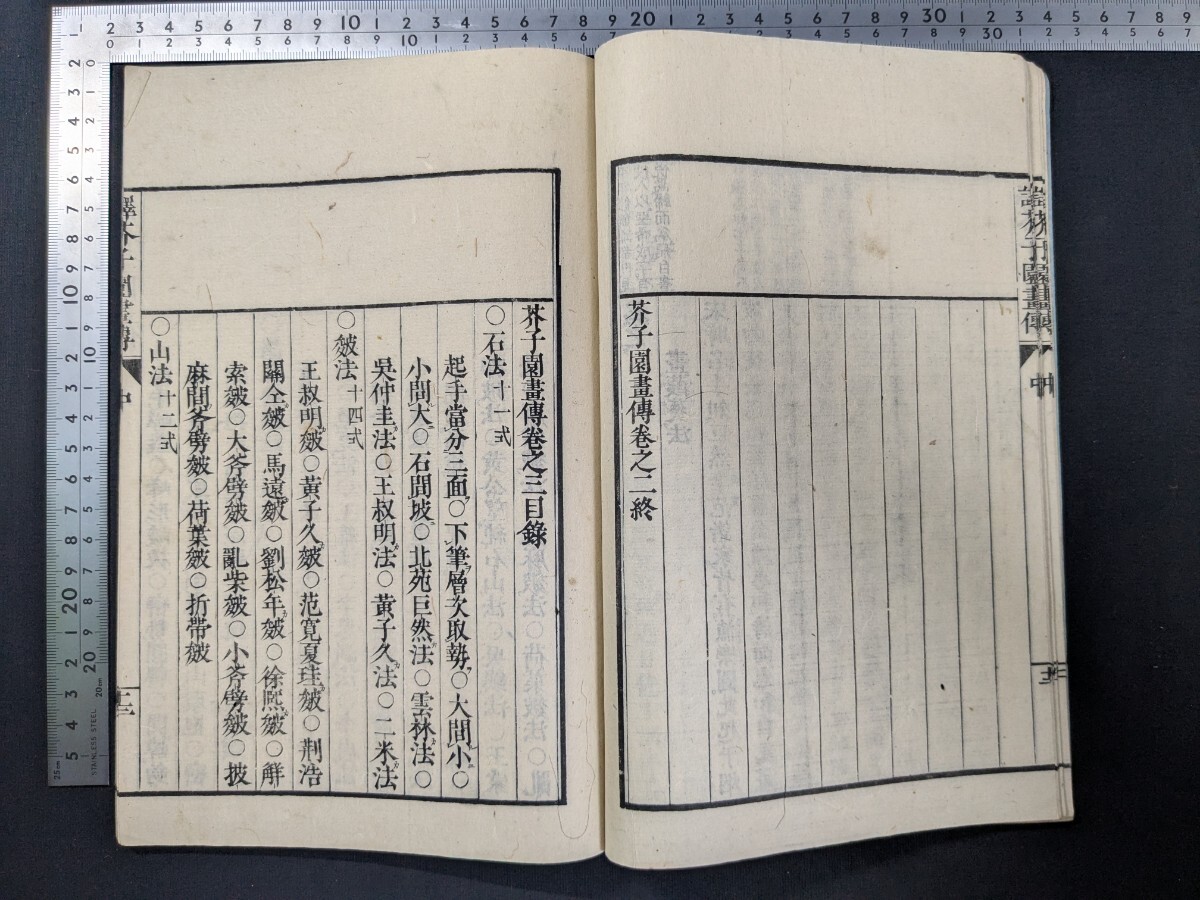 譯芥子園畫傳
中
芥子園畫傳卷之二終
芥子園畫傳卷之三目錄
○石法十一式
起手當分三面○下筆層次取勢○大間小○
小間大○石間坡○北苑巨然法○雲林法○
吳仲圭法○王叔明法○黃子久法○二米法
○皴法十四式
王叔明皴○黃子久皴○范寬夏珪皴○荆浩
關仝皴○馬遠皴○劉松年皴○徐熙皴○解
索皴○大斧劈皴○亂柴皴○小斧劈皴○披
麻間斧劈皴○荷葉皴○折帶皴
○山法十二式
譯芥子園畫傳
中
STAINLESS STEEL